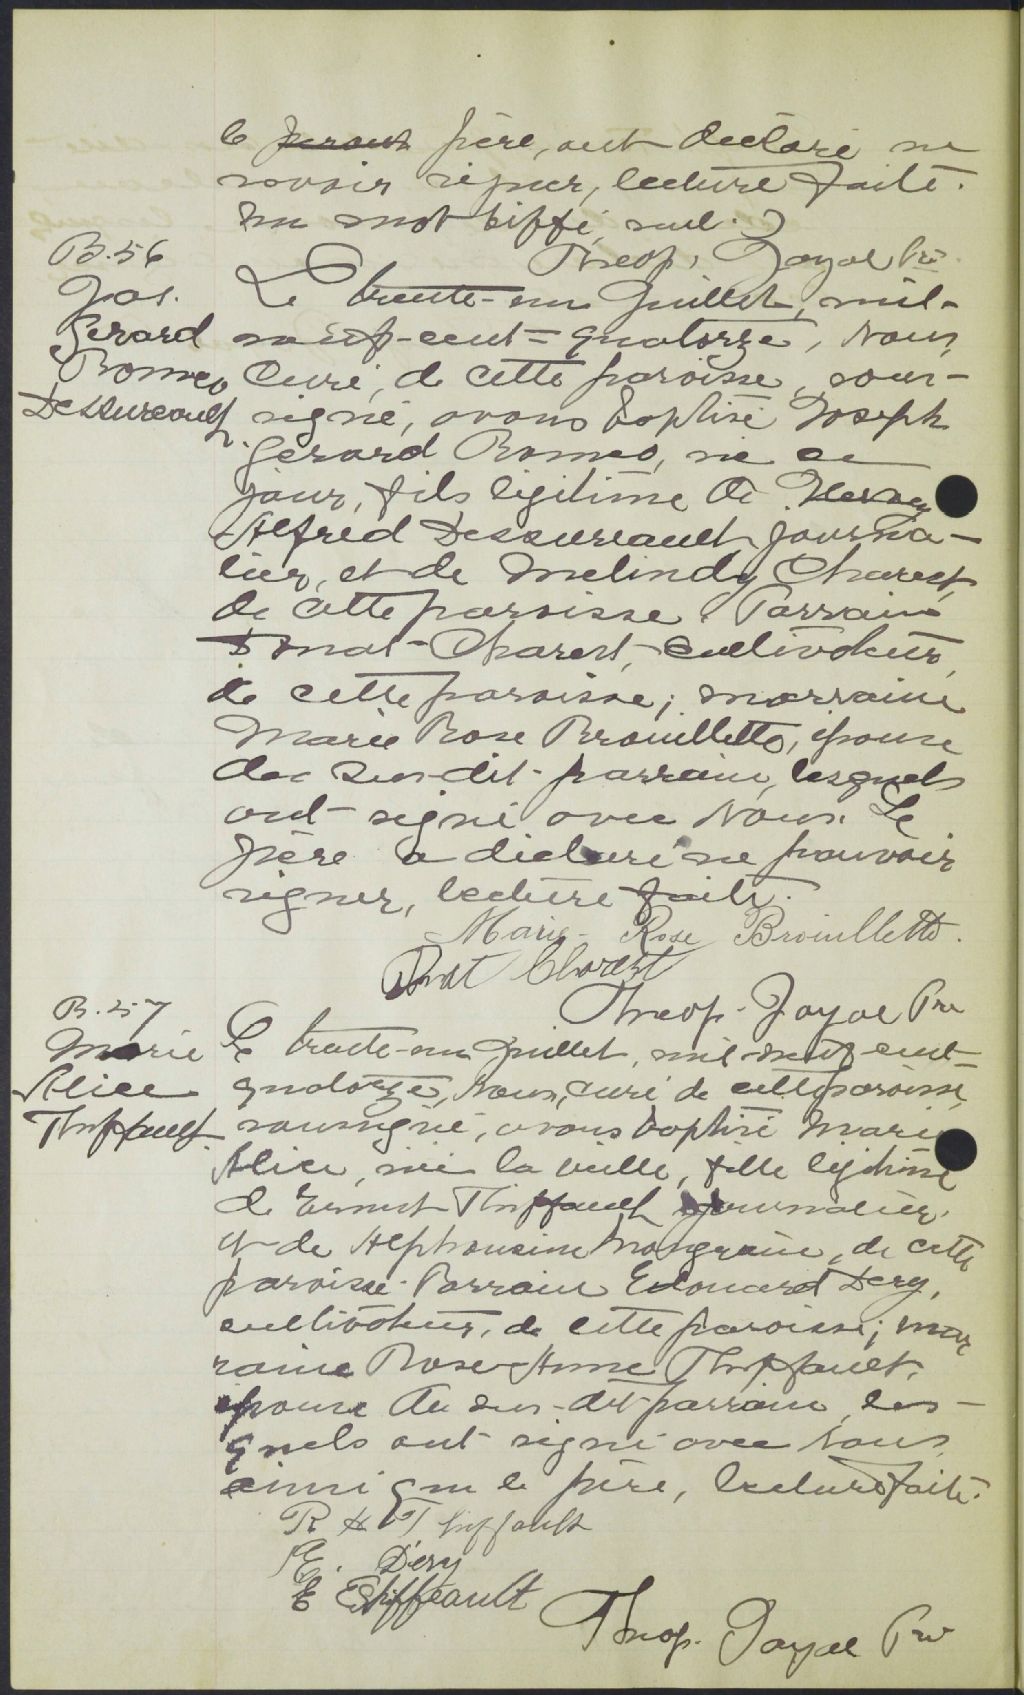 le parent père, ont déclaré ne
savoir signer, lecture faite.
un mot biffé, nul.
Theop. Joyal Ptre
B. 56
Jos.
Gerard
Romeo
Dessureault
Le trente-un Juillet, mil-
neuf-cent-quatorze, Nous,
Curé, de cette paroisse, sous-
signé, avons baptisé Joseph
Gerard Romeo, né ce
jour, fils légitime de
Alfred Dessureault, journa-
lier, et de Melindy Charest,
de cette paroisse. Parrain
Donat Charest, cultivateur,
de cette paroisse; marraine
Marie Rose Brouillette, épouse
du sus-dit parrain, lesquels
ont signé avec Nous. Le
père a déclaré ne pouvoir
signer, lecture faite.
Marie-Rose Brouillette.
Donat Charest
Theop. Joyal Ptre
B. 57
Marie
Alice
Thiffault
Le trente-un Juillet, mil-neuf-cent-
quatorze, Nous, curé de cette paroisse,
soussigné, avons baptisé Marie
Alice, née la veille, fille légitime
de Ernest Thiffault, journalier,
et de Alphonsine Mongrain, de cette
paroisse. Parrain Edouard Dery,
cultivateur, de cette paroisse; mar
raine Rose-Anne Thiffault,
épouse du sus-dit parrain, les-
quels ont signé avec Nous,
ainsi que le père, lecture faite.
R A Thiffault
E. Déry
E Thiffeault
Theop. Joyal Ptre